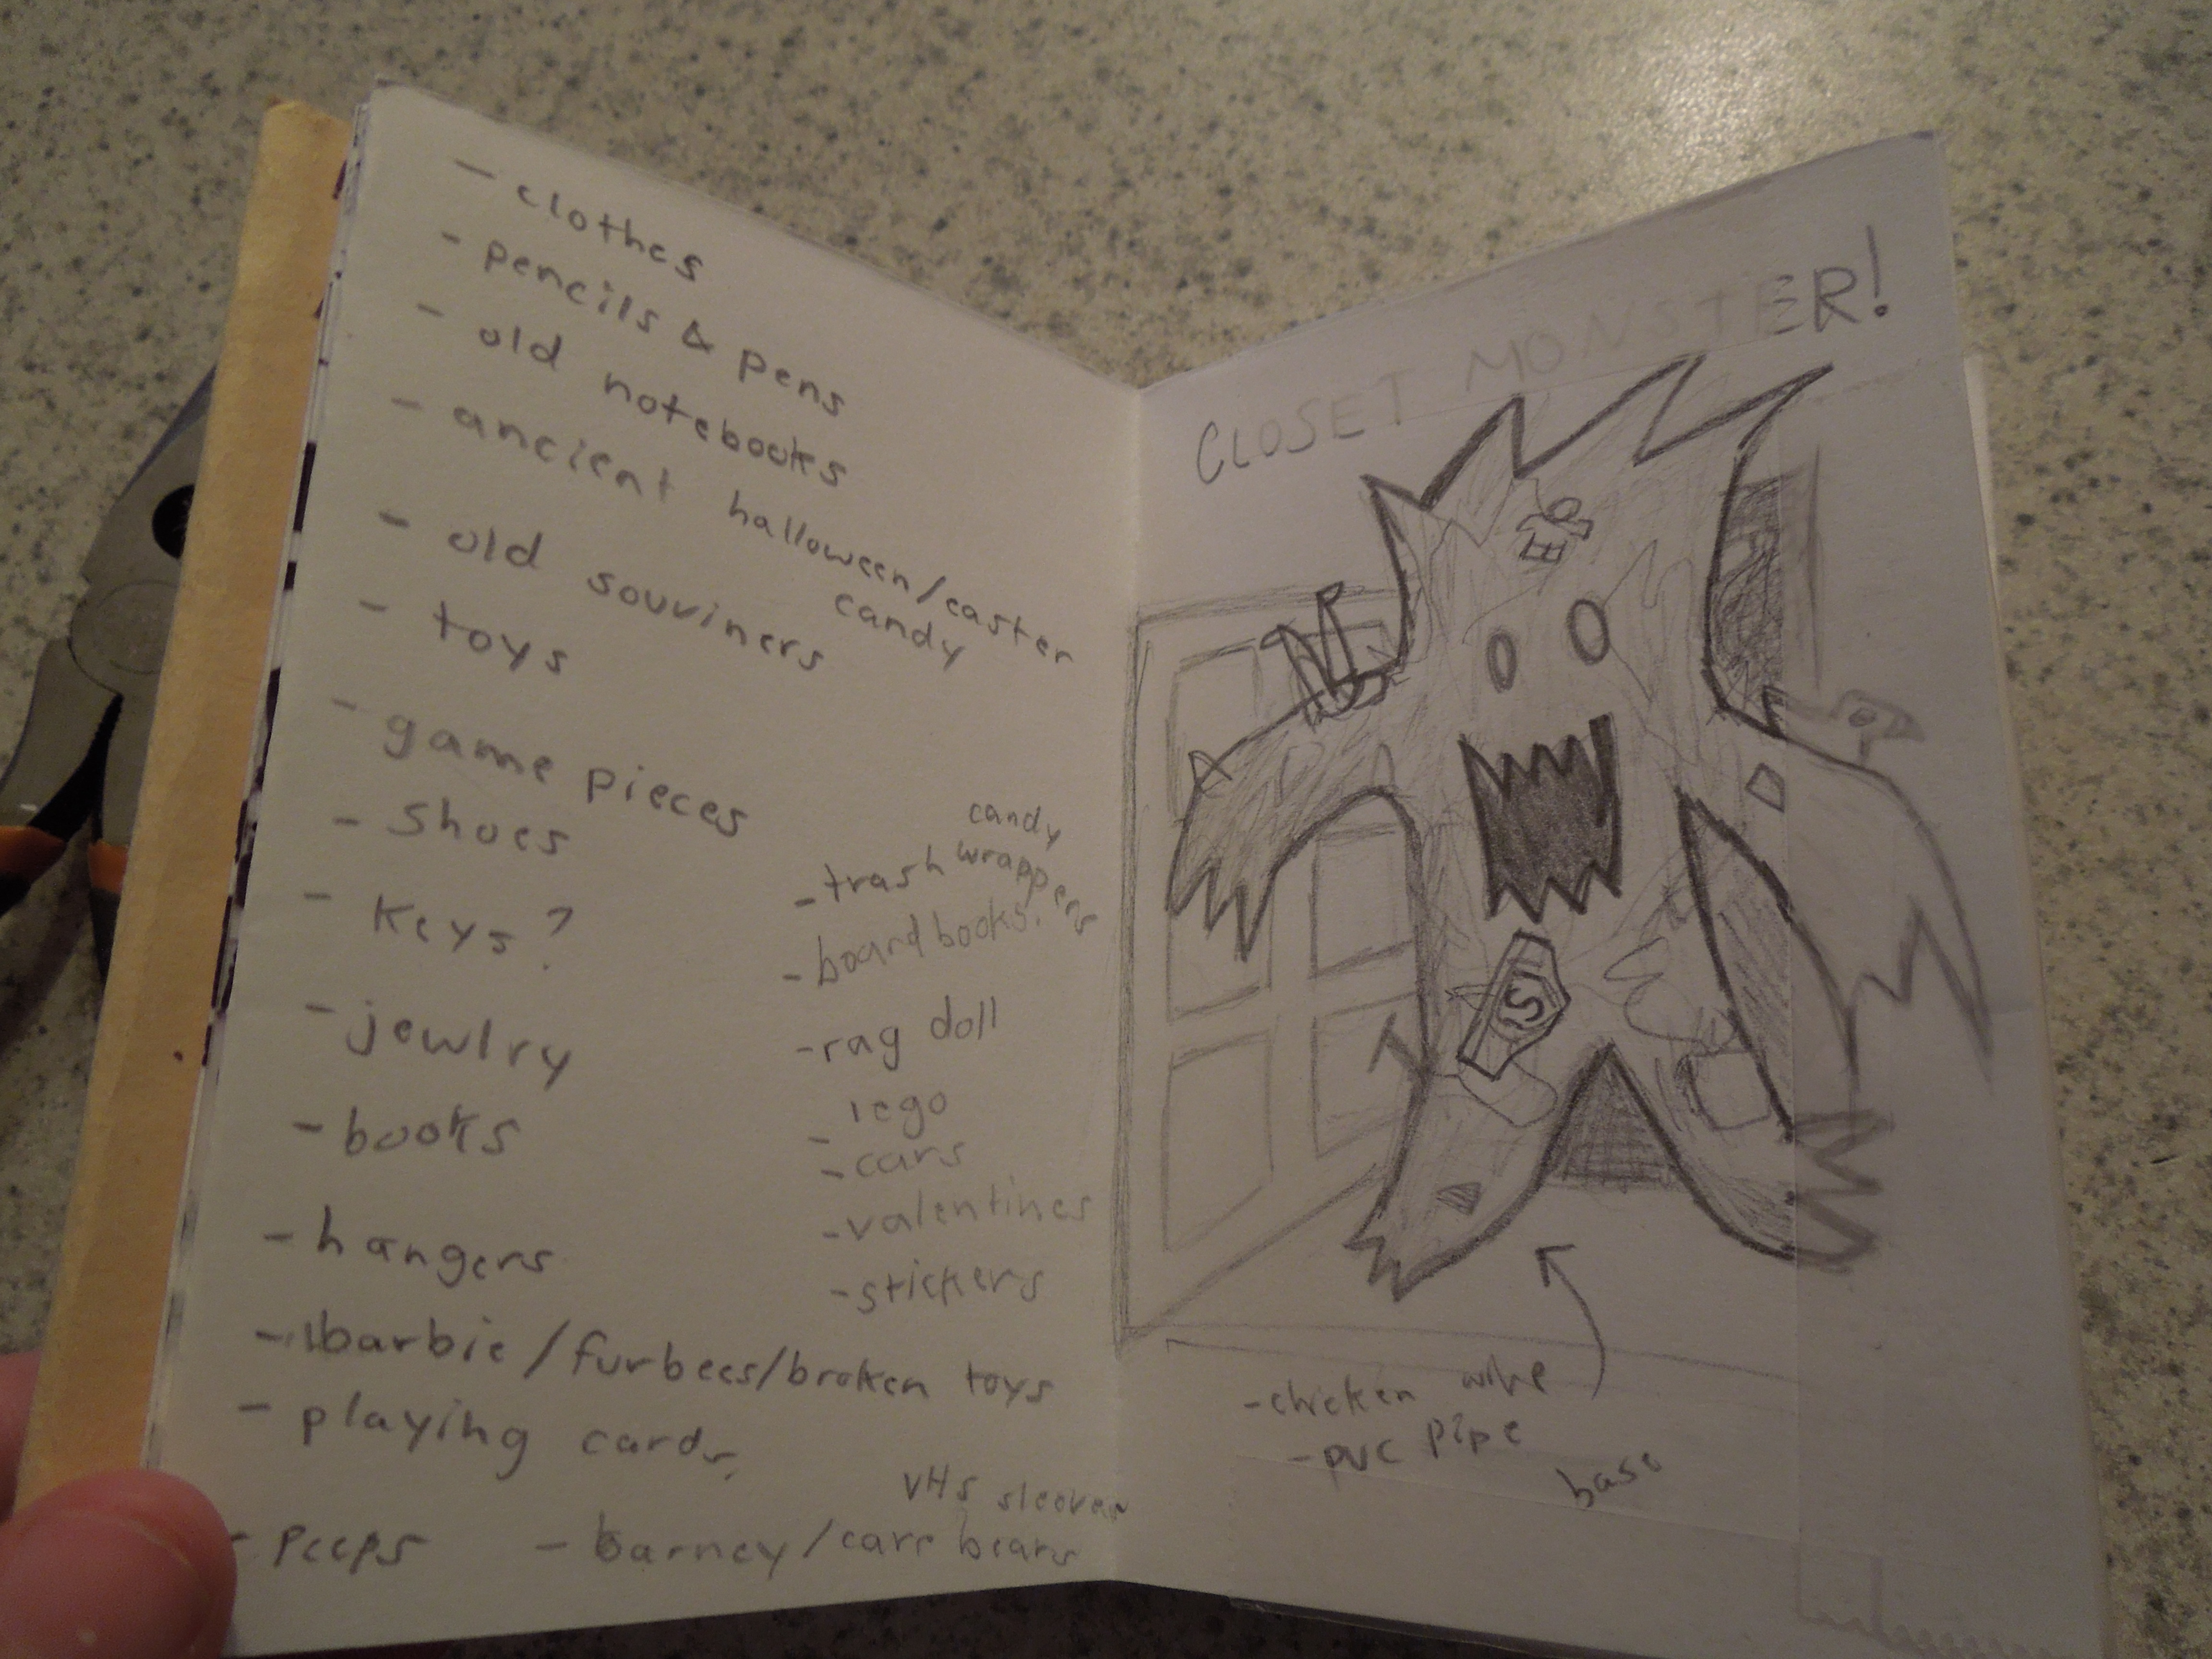 - clothes
- pencils & pens
- old notebooks
- ancient halloween/easter
candy
- old souviners
- toys
- game pieces
- shoes
- keys?
- jewlry
- books
- hangers
- barbie/furbees/broken toys
- playing cards
- peeps
candy
- trash wrappers
- boardbooks.
- rag doll
- lego
- cars
- valentines
- stickers
VHS sleeves
- barney/care bears
CLOSET MONSTER!
S
- chicken wire
- pvc pipe
base